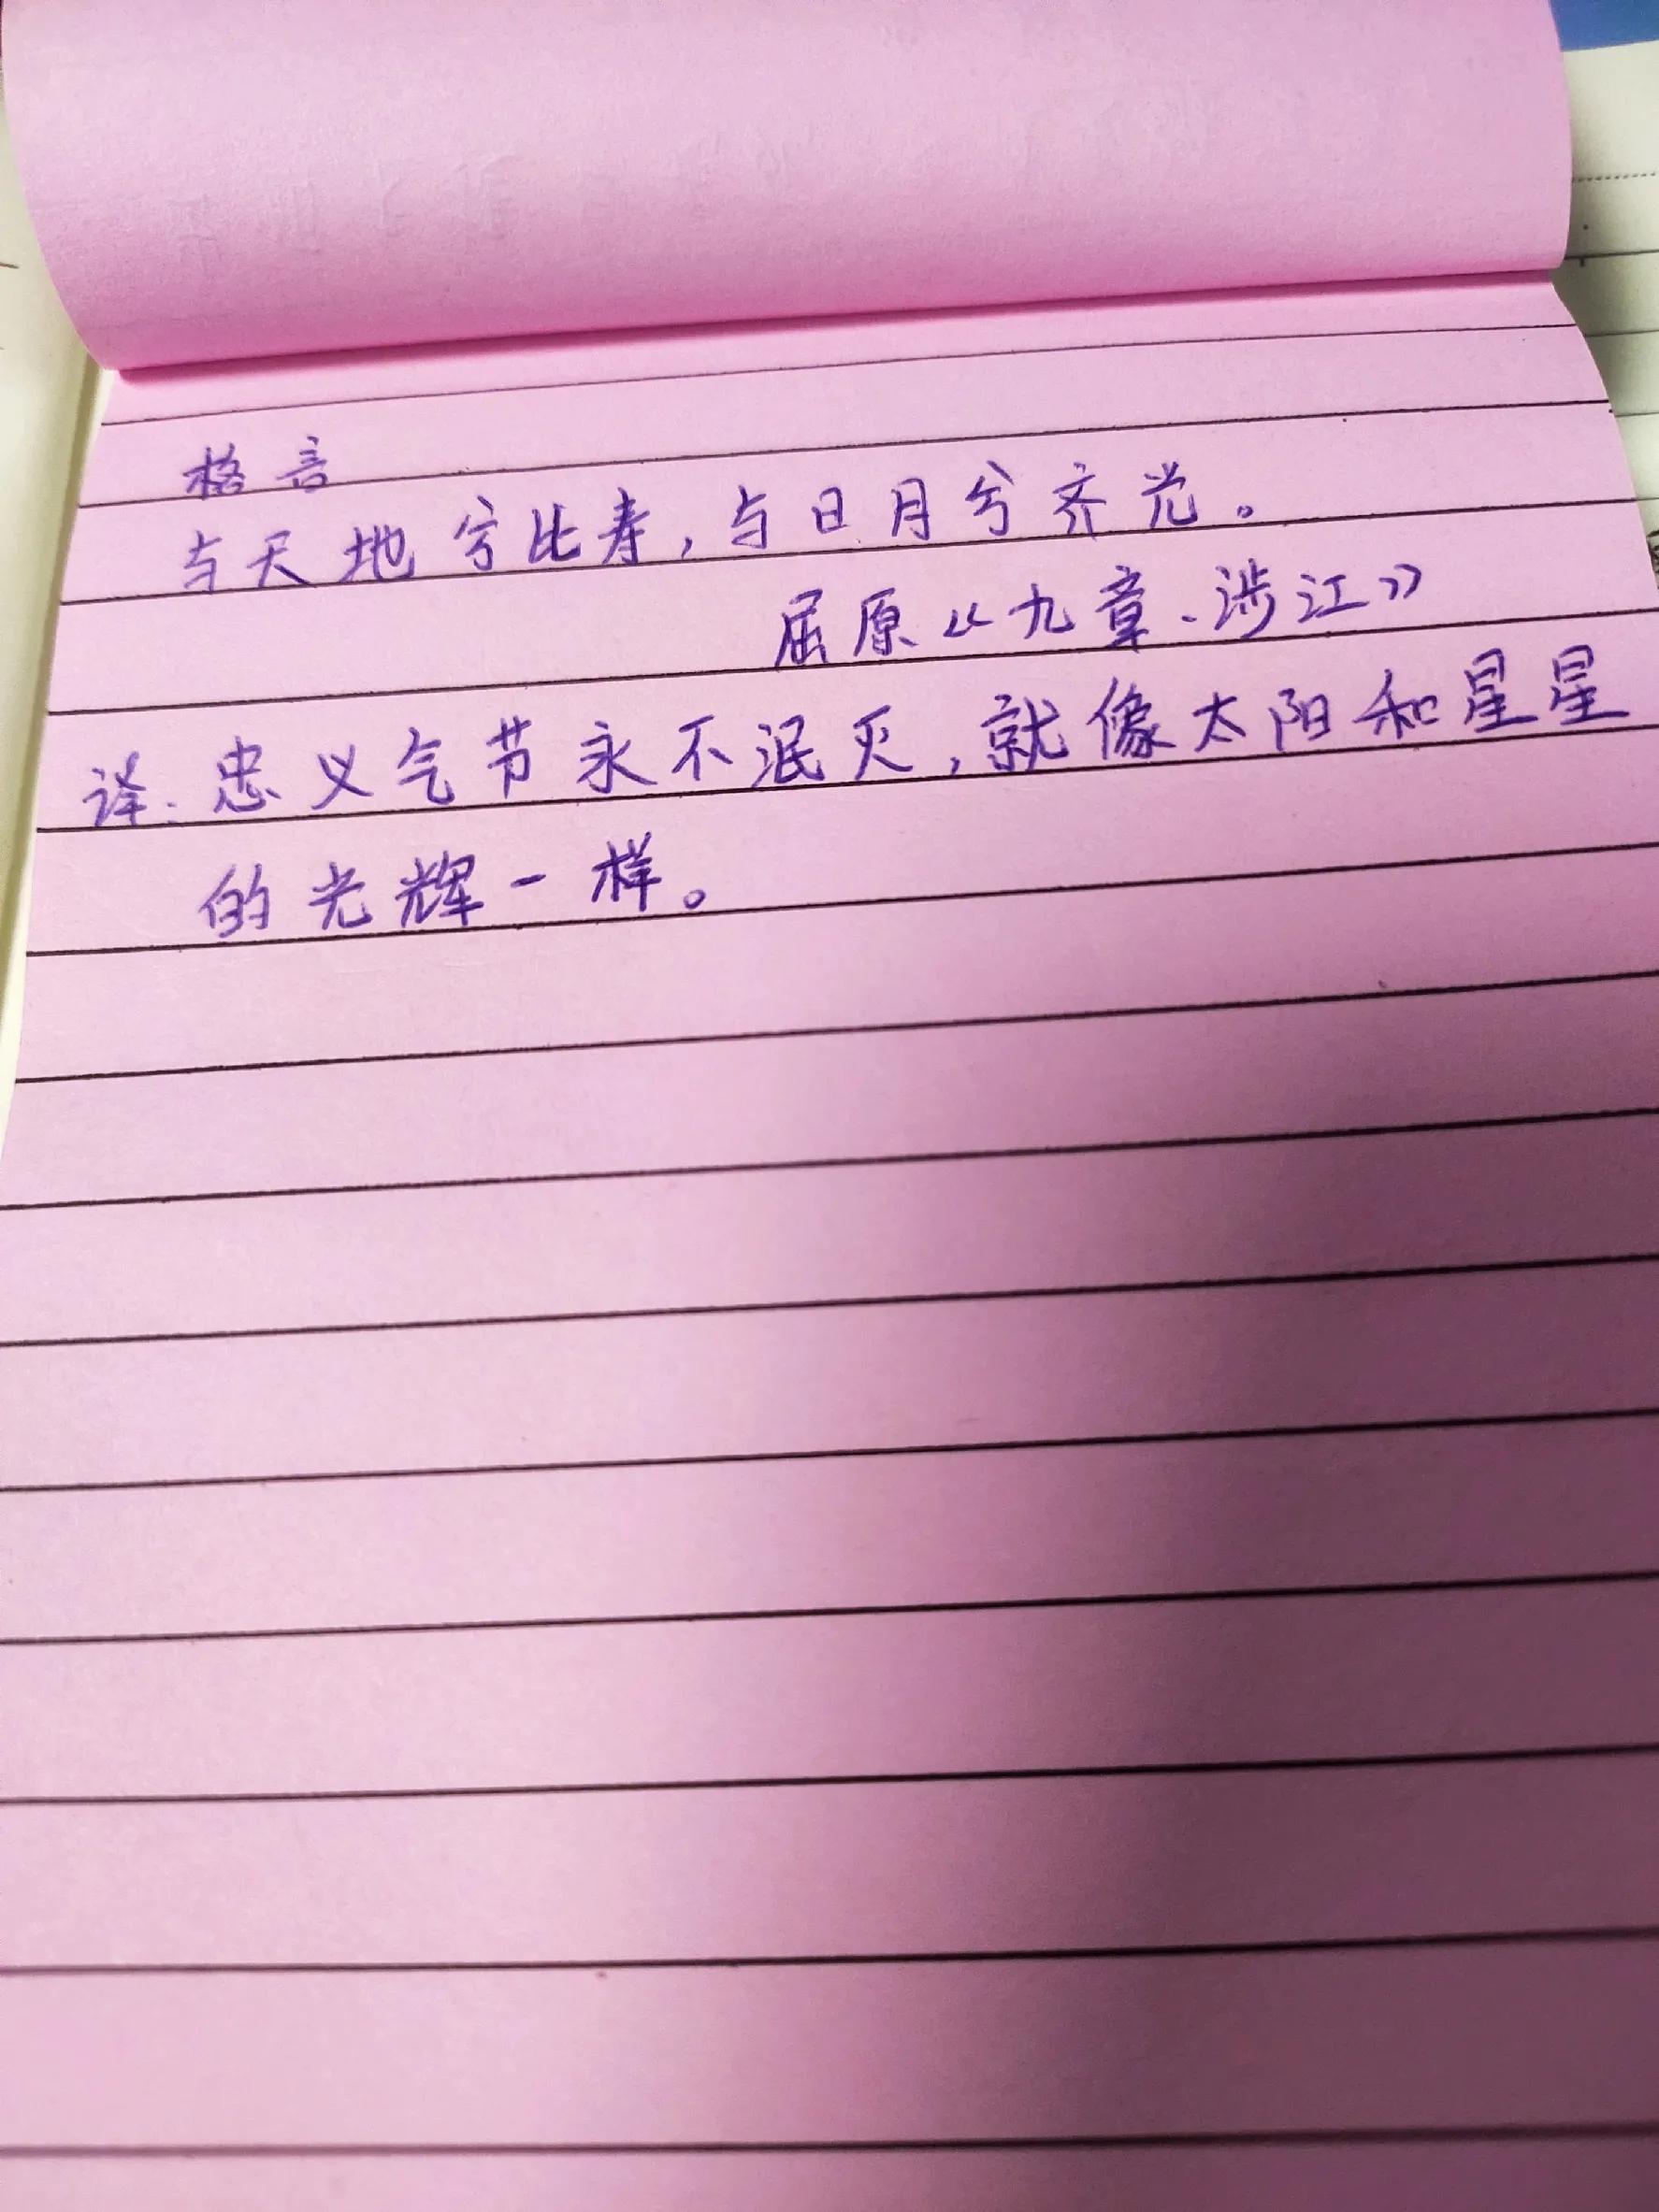 格言
与天地兮比寿,与日月兮齐光。
屈原《九章、涉江》
译:忠义气节永不泯灭,就像太阳和星星
的光辉一样。